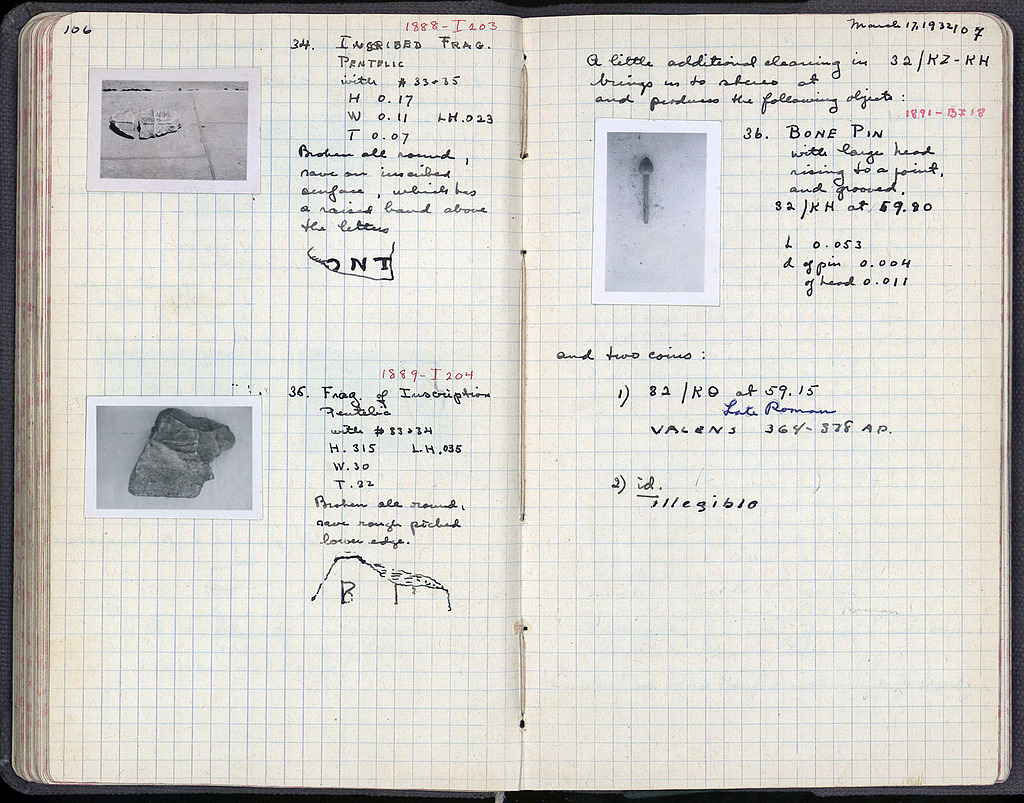 106
1888-I 203
34. INSCRIBED FRAG.
PENTELIC
with # 33 + 35
H 0.17
W 0.11 LH.023
T 0.07
Broken all round,
save on inscribed
surface, which has
a raised band above
the letters
1889-I 204
35. Frag. of Inscription
Pentelic
with # 33 + 34
H. 315 L.H. 035
W. 30
T. 22
Broken all round,
save rough picked
lower edge.
March 17, 1932 107
A little additional cleaning in 32/KZ-KH
brings us to stereo at
and produces the following objects:
1891-BI 18
36. BONE PIN
with large head
rising to a point,
and grooved.
32/KH at 59.80
L 0.053
d of pin 0.004
of head 0.011
and two coins:
1) 32/KΘ at 59.15
Late Roman
VALENS 364-378 A.D.
2) id.
illegible